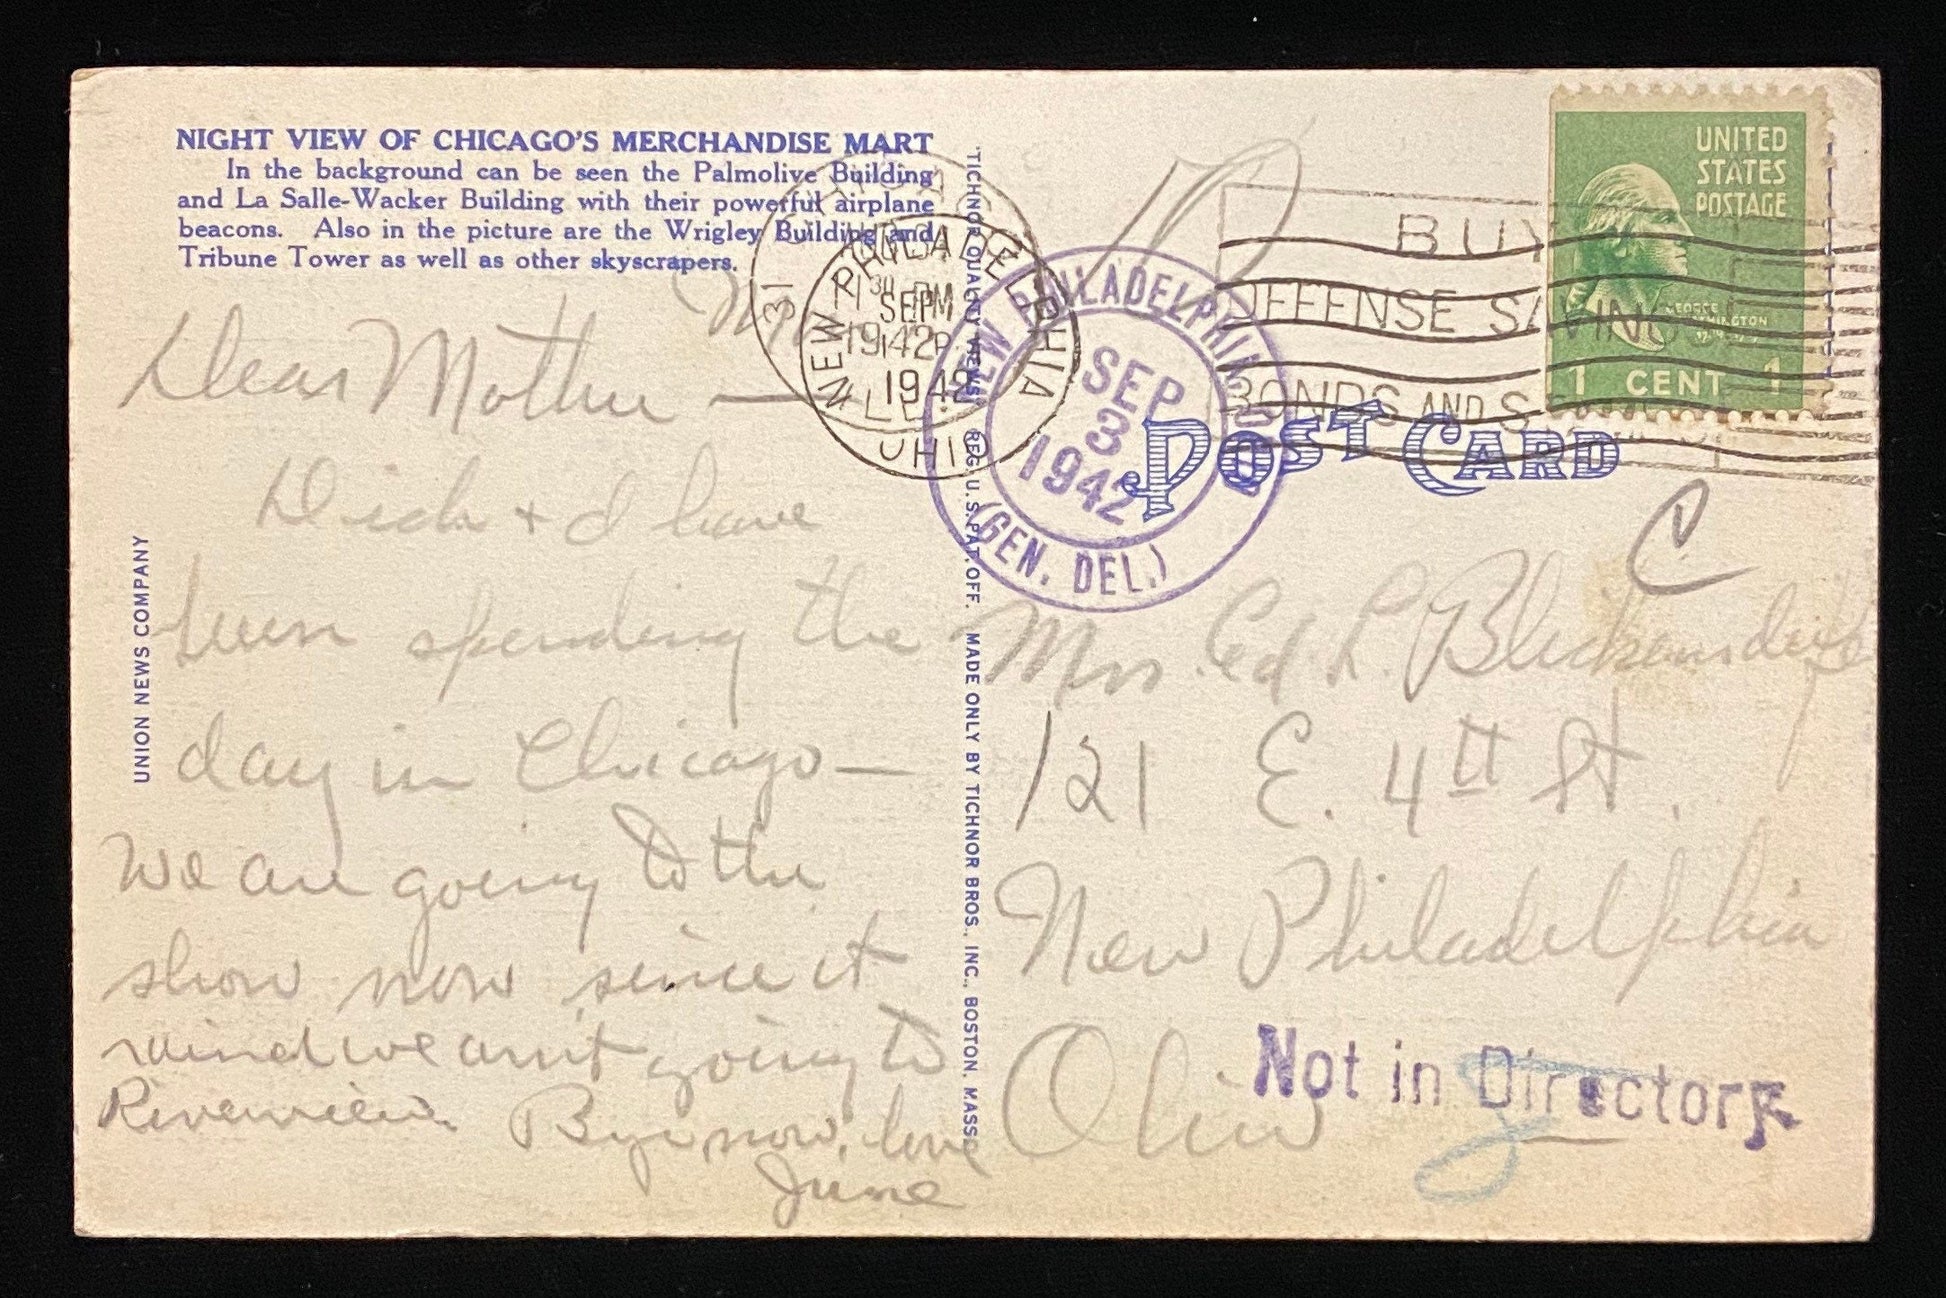 NIGHT VIEW OF CHICAGO'S MERCHANDISE MART
In the background can be seen the Palmolive Building
and La Salle-Wacker Building with their powerful airplane
beacons. Also in the picture are the Wrigley Building and
Tribune Tower as well as other skyscrapers.
UNION NEWS COMPANY
Dear Mother —
Dick + I have
been spending the
day in Chicago —
We are going to the
show now since it
rained we arn't going to
Riverview. Bye now, love
June
"TICHNOR QUALITY VIEWS," REG. U. S. PAT. OFF. MADE ONLY BY TICHNOR BROS., INC., BOSTON, MASS.
NEW PHILADELPHIA
SEP
1942
OHIO
NEW PHILADELPHIA, O.
SEP
3
1942
(GEN. DEL.)
BUY
DEFENSE SAVINGS
BONDS AND S
UNITED
STATES
POSTAGE
GEORGE
WASHINGTON
1 CENT 1
POST CARD
C
Mrs. Ed. L.
121 E. 4th St.
New Philadelphia
Ohio
Not in Directory